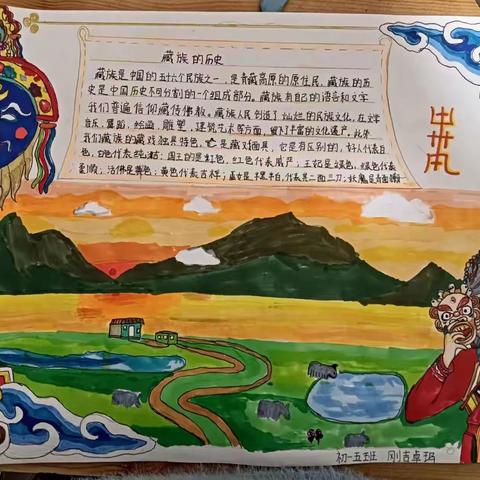 藏族的历史
藏族是中国的五十六个民族之一,是青藏高原的原住民,藏族的历
史是中国历史不可分割的一个组成部分。藏族有自己的语言和文字
我们普遍信仰藏传佛教。藏族人民创造了灿烂的民族文化,在文学
音乐,舞蹈,绘画,雕塑,建筑艺术等方面,留下了丰富的文化遗产。此外
我们藏族的藏戏独具特色,它是藏戏面具,它是有区别的,好人代表白
色,白色代表纯洁;国王的是红色,红色代表威严;王妃是绿色,绿色代表
柔顺;活佛是黄色;黄色代表吉祥;巫女是半黑半白,代表其二面三刀;妖魔是青面獠
初一五班 刚吉卓玛